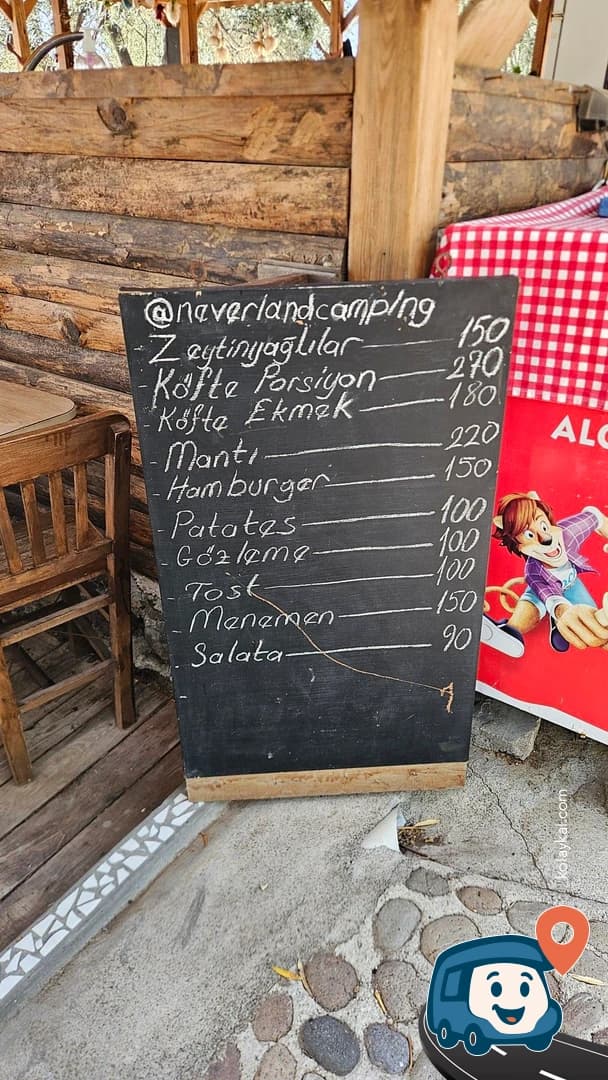 @neverlandcamping
Zeytinyağlılar 150
Köfte Porsiyon 270
Köfte Ekmek 180
Mantı 220
Hamburger 150
Patates 100
Gözleme 100
Tost 100
Menemen 150
Salata 90
ALG
kolaykal.com